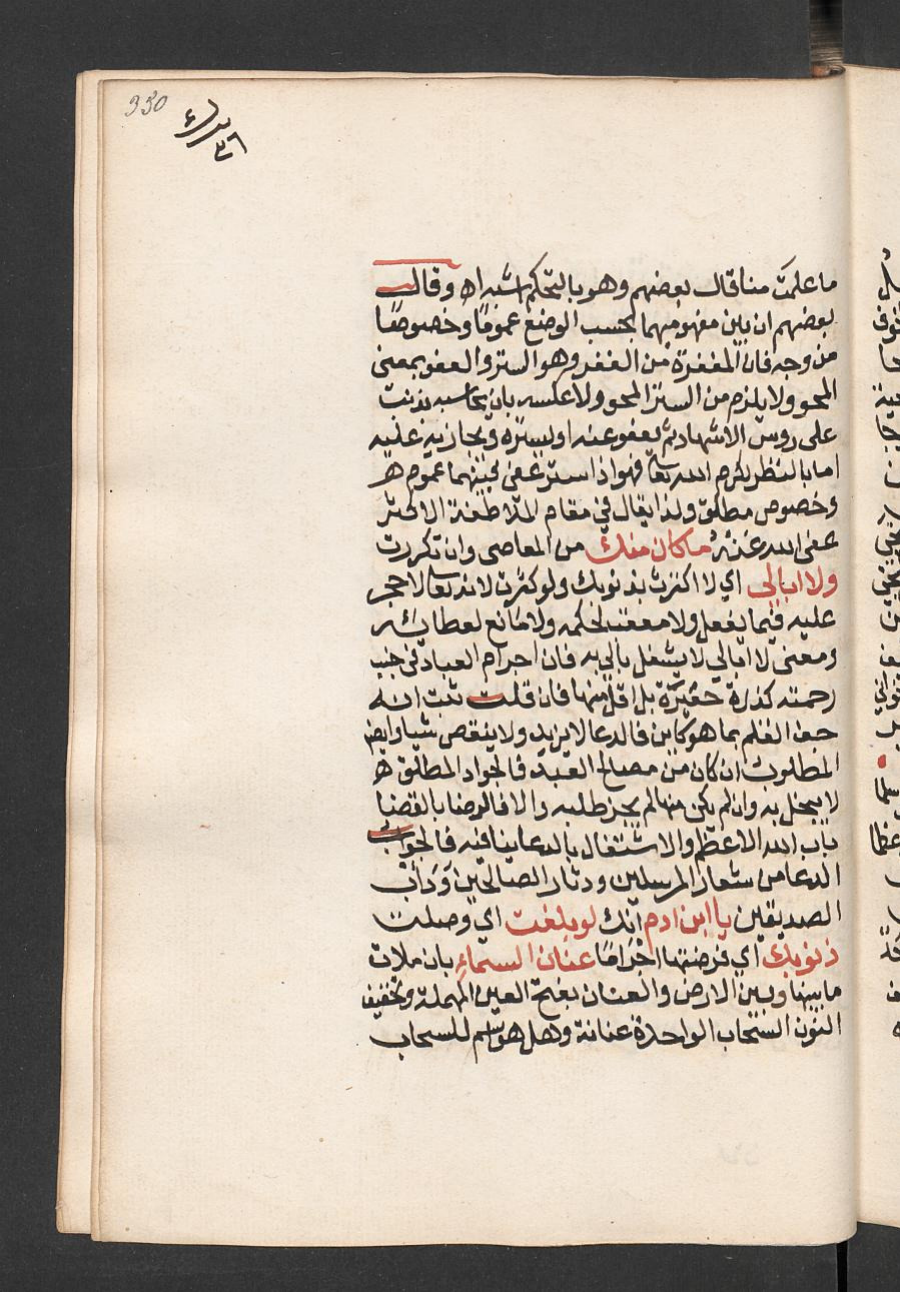 330
ما علمت منا قال بعضهم وهو بالتحكم اشبه اه وقال
بعضهم ان بين مفهوميهما بحسب الوضع عموما وخصوصا
من وجه فان المغفرة من الغفر وهو الستر والعفو بمعنى
المحو ولا يلزم من الستر المحو ولا عكسه بان يحاسبه بذنب
على روس الاشهاد ثم يعفو عنه او يستره ويجازيه عليه
اما بالنظر لكرم الله تعالى فهو اذا ستر عفى فبينهما عموم
وخصوص مطلق ولذا يقال في مقام الملاطفة الاكثر
عفى الله عنه ما كان منك من المعاصى وان تكررت
ولا ابالى اي لا اكترث بذنوبك ولو كثرت لانه تعالى لا حجر
عليه فيما يفعل ولا معقب لحكمه ولا مانع لعطايه
ومعنى لا ابالي لا يشغل بالي به فان اجرام العباد في جنب
رحمته كذرة حقيرة بل اقل منها فان قلت ثبت انه
جف القلم بما هو كاين فالدعا لا يزيد ولا ينقص شيا وايضا
المطلوب ان كان من مصالح العبد فالجواد المطلق
لا يبخل به وان لم يكن منها لم يجز طلبه والا فالرضا بالقضا
باب الله الاعظم والاشتغال بالدعا ينافيه فالجواب
الدعا من شعار المرسلين ودثار الصالحين وداب
الصديقين يا ابن ادم انك لو بلغت اي وصلت
ذنوبك اي فرضتها اجراما عنان السماء بان ملات
ما بينها وبين الارض والعنان بفتح العين المهملة وتخفيف
النون السحاب الواحدة عنانة وهل هو اسم للسحاب